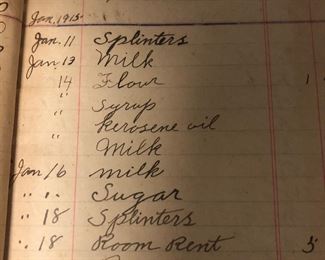 Jan. 1915
Jan. 11 Splinters
Jan 13 Milk
14 Flour 1
" Syrup
" Kerosene oil
Milk
Jan 16 milk
" " Sugar
" 18 Splinters
" 18 Room Rent 5